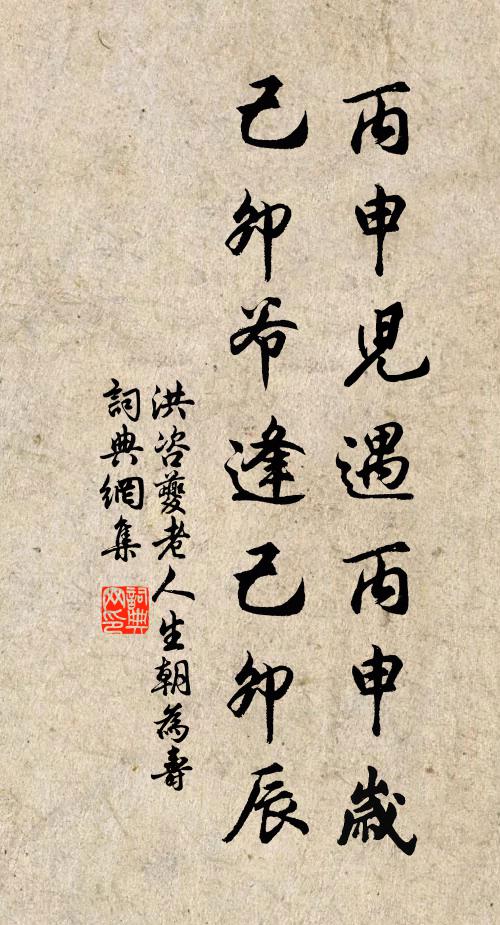 丙申児遇丙申歲
己卯爷逢己卯辰
洪咨夔老人生朝為壽
詞典網集
詞典網印